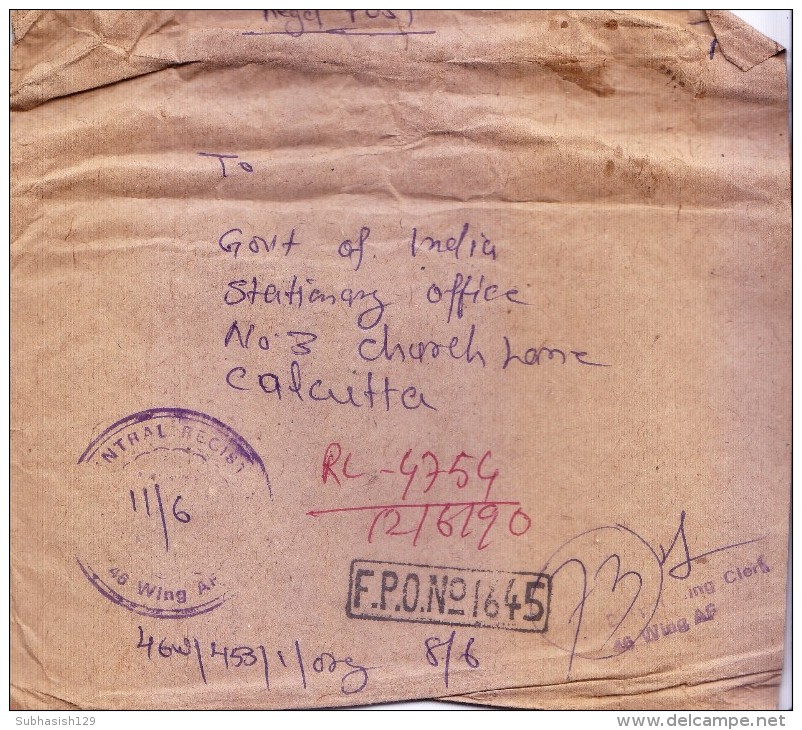 Regd Post
To
Govt of India
Stationary office
No. 3 Church Lane
Calcutta
NTRAL REGIST
11/6
46 Wing AF
RL-4754
12/6/90
F.P.O. No 1645
ing Clerk
46 Wing AF
46W/453/1/org 8/6
Subhasish129
delcampe.net